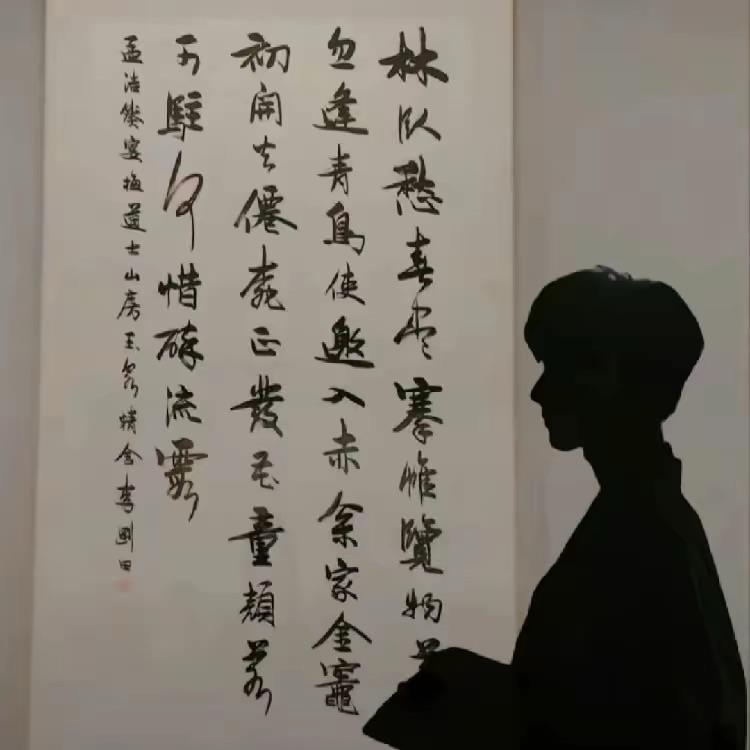 林卧愁春尽搴帷覽物
忽逢青鳥使邀入赤枩家金竈
初開火僊桃正發花童顏若
可駐何惜醉流霞
孟浩然宴梅道士山房玉泉精舍李剛田